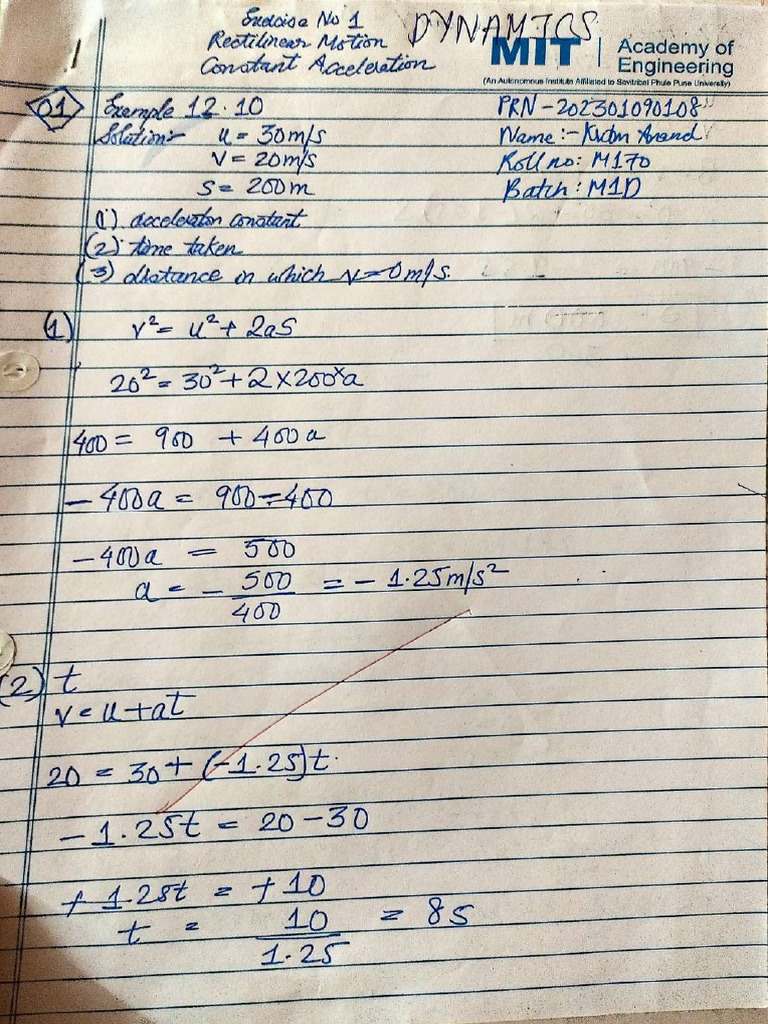 Exercise No 1
DYNAMICS
Rectilinear Motion
Constant Acceleration
MIT | Academy of Engineering
(An Autonomous Institute Affiliated to Savitribai Phule Pune University)
01 Example 12.10
PRN - 202301090108
Solution:- u = 30m/s
Name:- Anand
v = 20m/s
Roll no: M170
s = 200m
Batch: M1D
(1) acceleraton constant
(2) time taken
(3) distance in which v=0m/s.
(1) v² = u² + 2as
20² = 30² + 2×200×a
400 = 900 + 400a
-400a = 900-400
-400a = 500
a = - 500/400 = - 1.25m/s²
(2) t
v = u+at
20 = 30+ (-1.25)t.
-1.25t = 20-30
+ 1.25t = +10
t = 10/1.25 = 8s